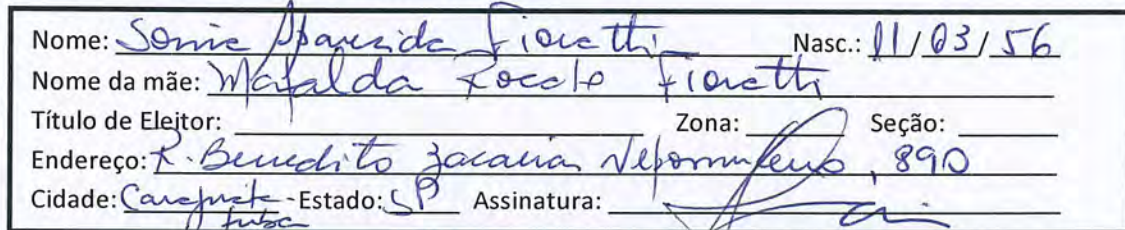 Nome: Sonia Aparecida Fioretti Nasc.: 11/03/56
Nome da mãe: Mafalda Fioretti
Título de Eleitor: Zona: Seção:
Endereço: R. Benedito Zacarias Nepomuceno, 890
Cidade: Caraguatatuba - Estado: SP Assinatura: